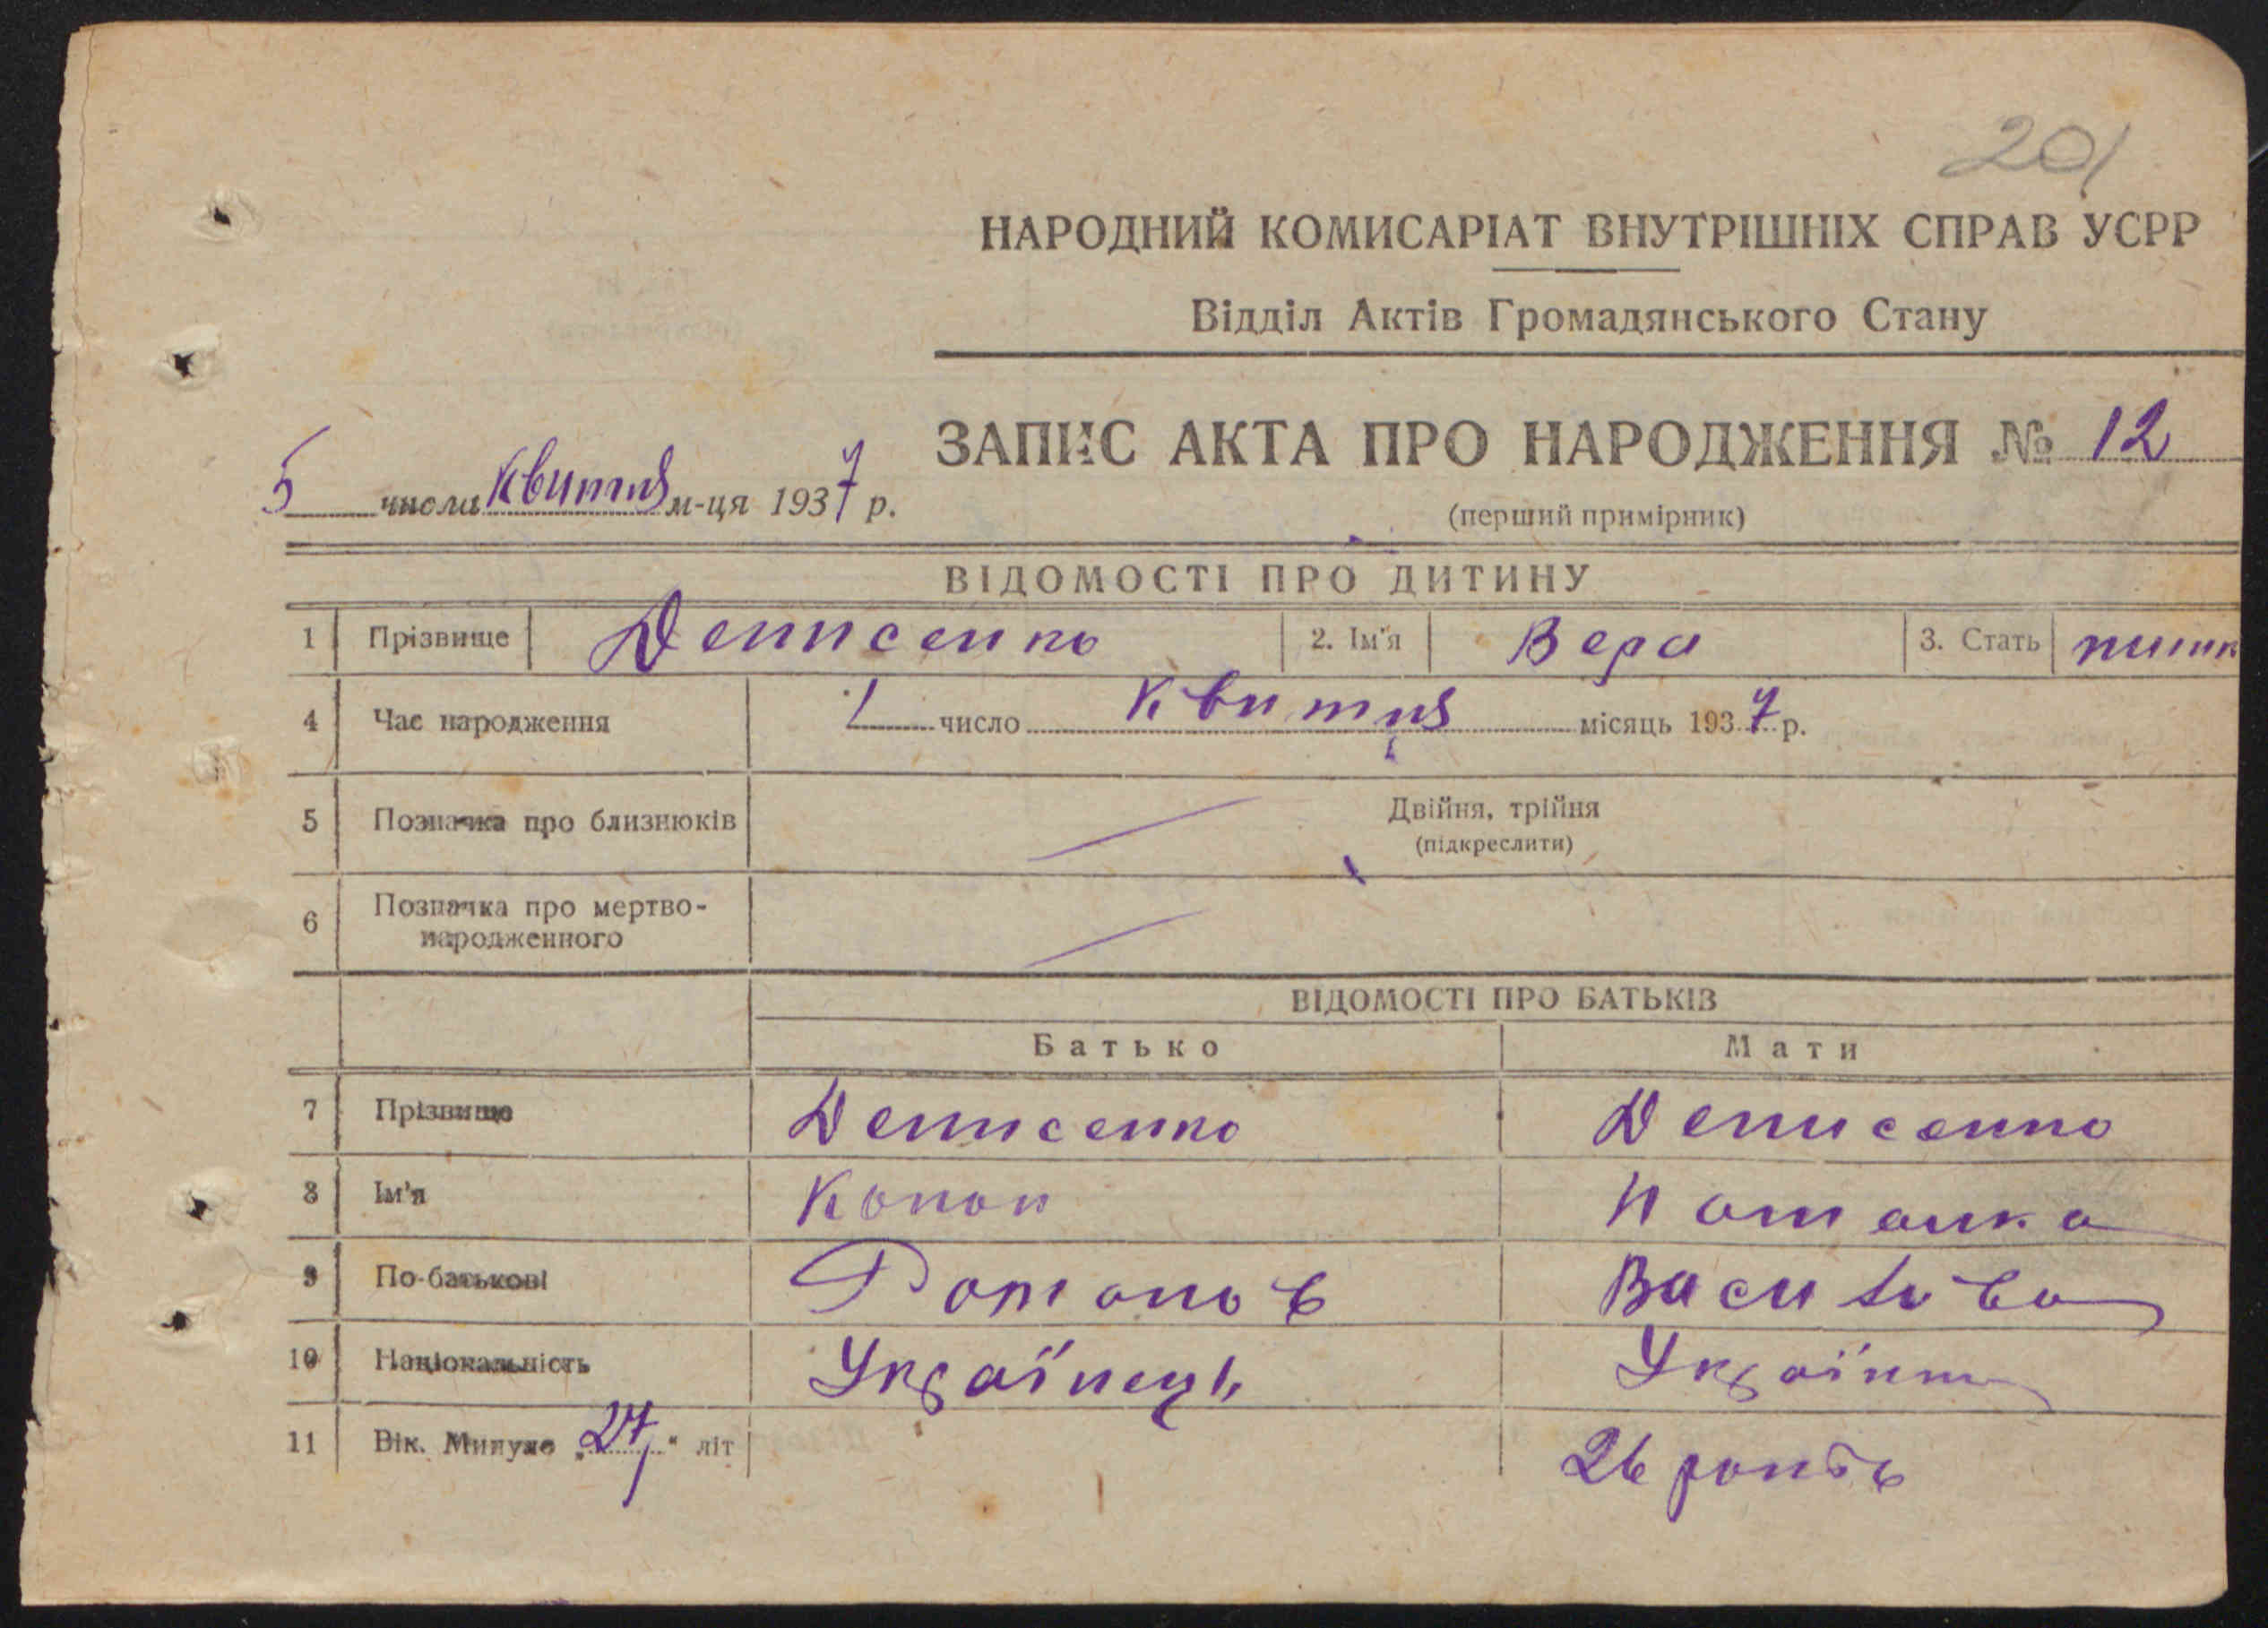 201
НАРОДНИЙ КОМИСАРІАТ ВНУТРІШНІХ СПРАВ УСРР
Відділ Актів Громадянського Стану
ЗАПИС АКТА ПРО НАРОДЖЕННЯ № 12
5 числа Квитня м-ця 1937 р.
(перший примірник)
ВІДОМОСТІ ПРО ДИТИНУ
1 Прізвище Денисенко 2. Ім'я Вера 3. Стать
4 Час народження 1 число Квитня місяць 1937 р.
5 Позначка про близнюків Двійня, трійня
(підкреслити)
6 Позначка про мертво-
народженного
ВІДОМОСТІ ПРО БАТЬКІВ
Батько Мати
7 Прізвище Денисенко Денисенко
8 Ім'я Конон
9 По-батькові Романов
10 Національність Українець Українка
11 Вік. Минуло „27“ літ 26 років